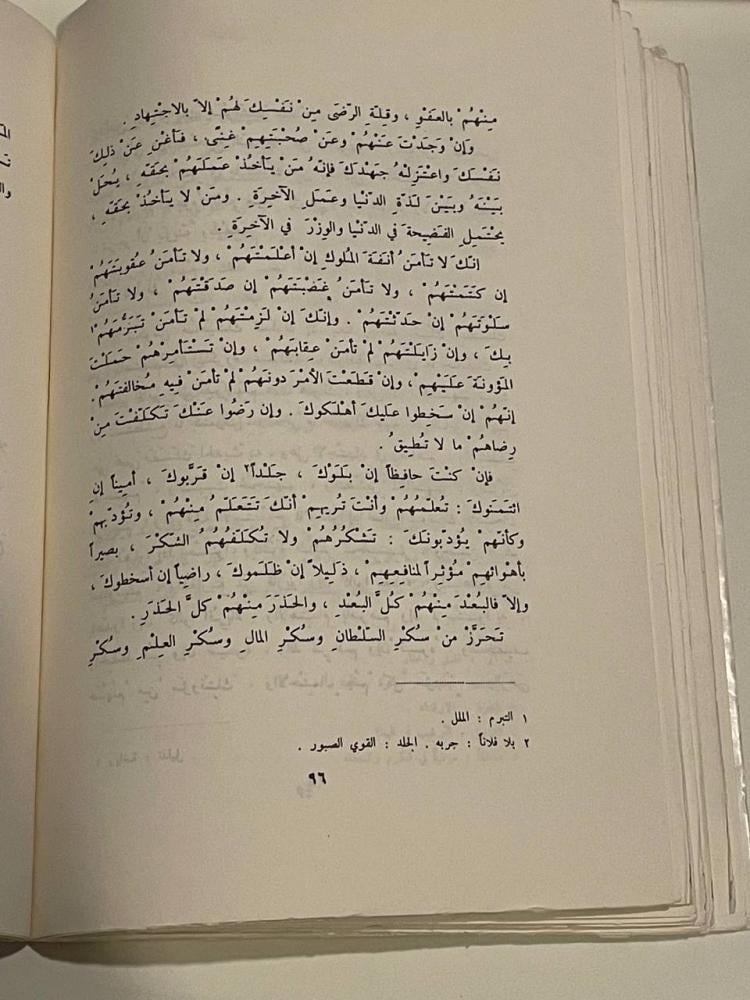 مِنْهُمْ بالعَفْوِ ، وقِلّةِ الرّضَى مِنْ نَفْسِكَ لهُمْ إلاّ بالاجْتِهادِ .
وإنْ وَجَدْتَ عَنْهُمْ وعَنْ صُحْبَتِهِمْ غِنًى ، فأغْنِ عَنْ ذلِكَ
نَفْسَكَ واعْتَزِلْهُ جَهْدَكَ فإنّهُ مَنْ يَأخُذْ عَمَلَهُمْ بحَقّهِ ، يُحَلْ
بَيْنَهُ وبَيْنَ لَذّةِ الدّنْيا وعَمَلِ الآخِرَةِ . ومَنْ لا يَأخُذْ بحَقّهِ ،
يحْتَمِلِ الفَضِيحَةَ في الدّنْيا والوِزْرَ في الآخِرَةِ .
انّكَ لا تَأمَنُ أنَفَةَ المُلوكِ إنْ أعْلَمْتَهُمْ ، ولا تَأمَنُ عُقوبَتَهُمْ
إن كَتَمْتَهُمْ ، ولا تَأمَنُ غَضْبَتَهُمْ إن صَدَقْتَهُمْ ، ولا تَأمَنُ
سَلْوَتَهُمْ إنْ حَدّثْتَهُمْ . وإنّكَ إنْ لَزِمْتَهُمْ لمْ تَأمَنْ تَبَرُّمَهُمْ١
بِكَ ، وإنْ زَايَلْتَهُمْ لمْ تأمَنْ عِقابَهُمْ ، وإنْ تَسْتَأمِرْهُمْ حَمَلْتَ
المَؤونَةَ عَلَيْهِمْ ، وإنْ قَطَعْتَ الأمْرَ دونَهُمْ لمْ تأمَنْ فيهِ مُخالفَتَهُمْ .
إنّهُمْ إنْ سَخِطوا علَيكَ أهْلَكوكَ . وإن رَضُوا عَنْكَ تَكَلّفْتَ مِنْ
رِضاهُمْ ما لا تُطِيقُ .
فإنْ كنْتَ حافِظاً إنْ بَلَوْكَ ، جَلْداً٢ إنْ قَرّبُوكَ ، أمِيناً إنِ
ائتَمَنوكَ : تُعلّمُهُمْ وأنتَ تُرِيهِمْ أنّكَ تَتَعَلّمُ مِنْهُمْ ، وتُؤدّبهمْ
وكأنّهمْ يُؤدّبونَكَ : تَشْكُرُهُمْ ولا تُكَلّفُهُمُ الشّكْرَ ، بصيراً
بأهْوائهِمْ مُؤثِراً لمَنافِعِهِمْ ، ذَلِيلاً إنْ ظَلَموكَ ، راضِياً إن أسخطوكَ ،
وإلاّ فالبُعْدَ مِنْهُمْ كُلَّ البُعْدِ ، والحَذَرَ مِنْهُمْ كلَّ الحَذَرِ .
تَحَرّزْ منْ سُكْرِ السّلْطانِ وسُكْرِ المالِ وسُكْرِ العِلْمِ وسُكْرِ
١ التبرم : الملل .
٢ بلا فلاناً : جربه . الجلد : القوي الصبور .
٩٦